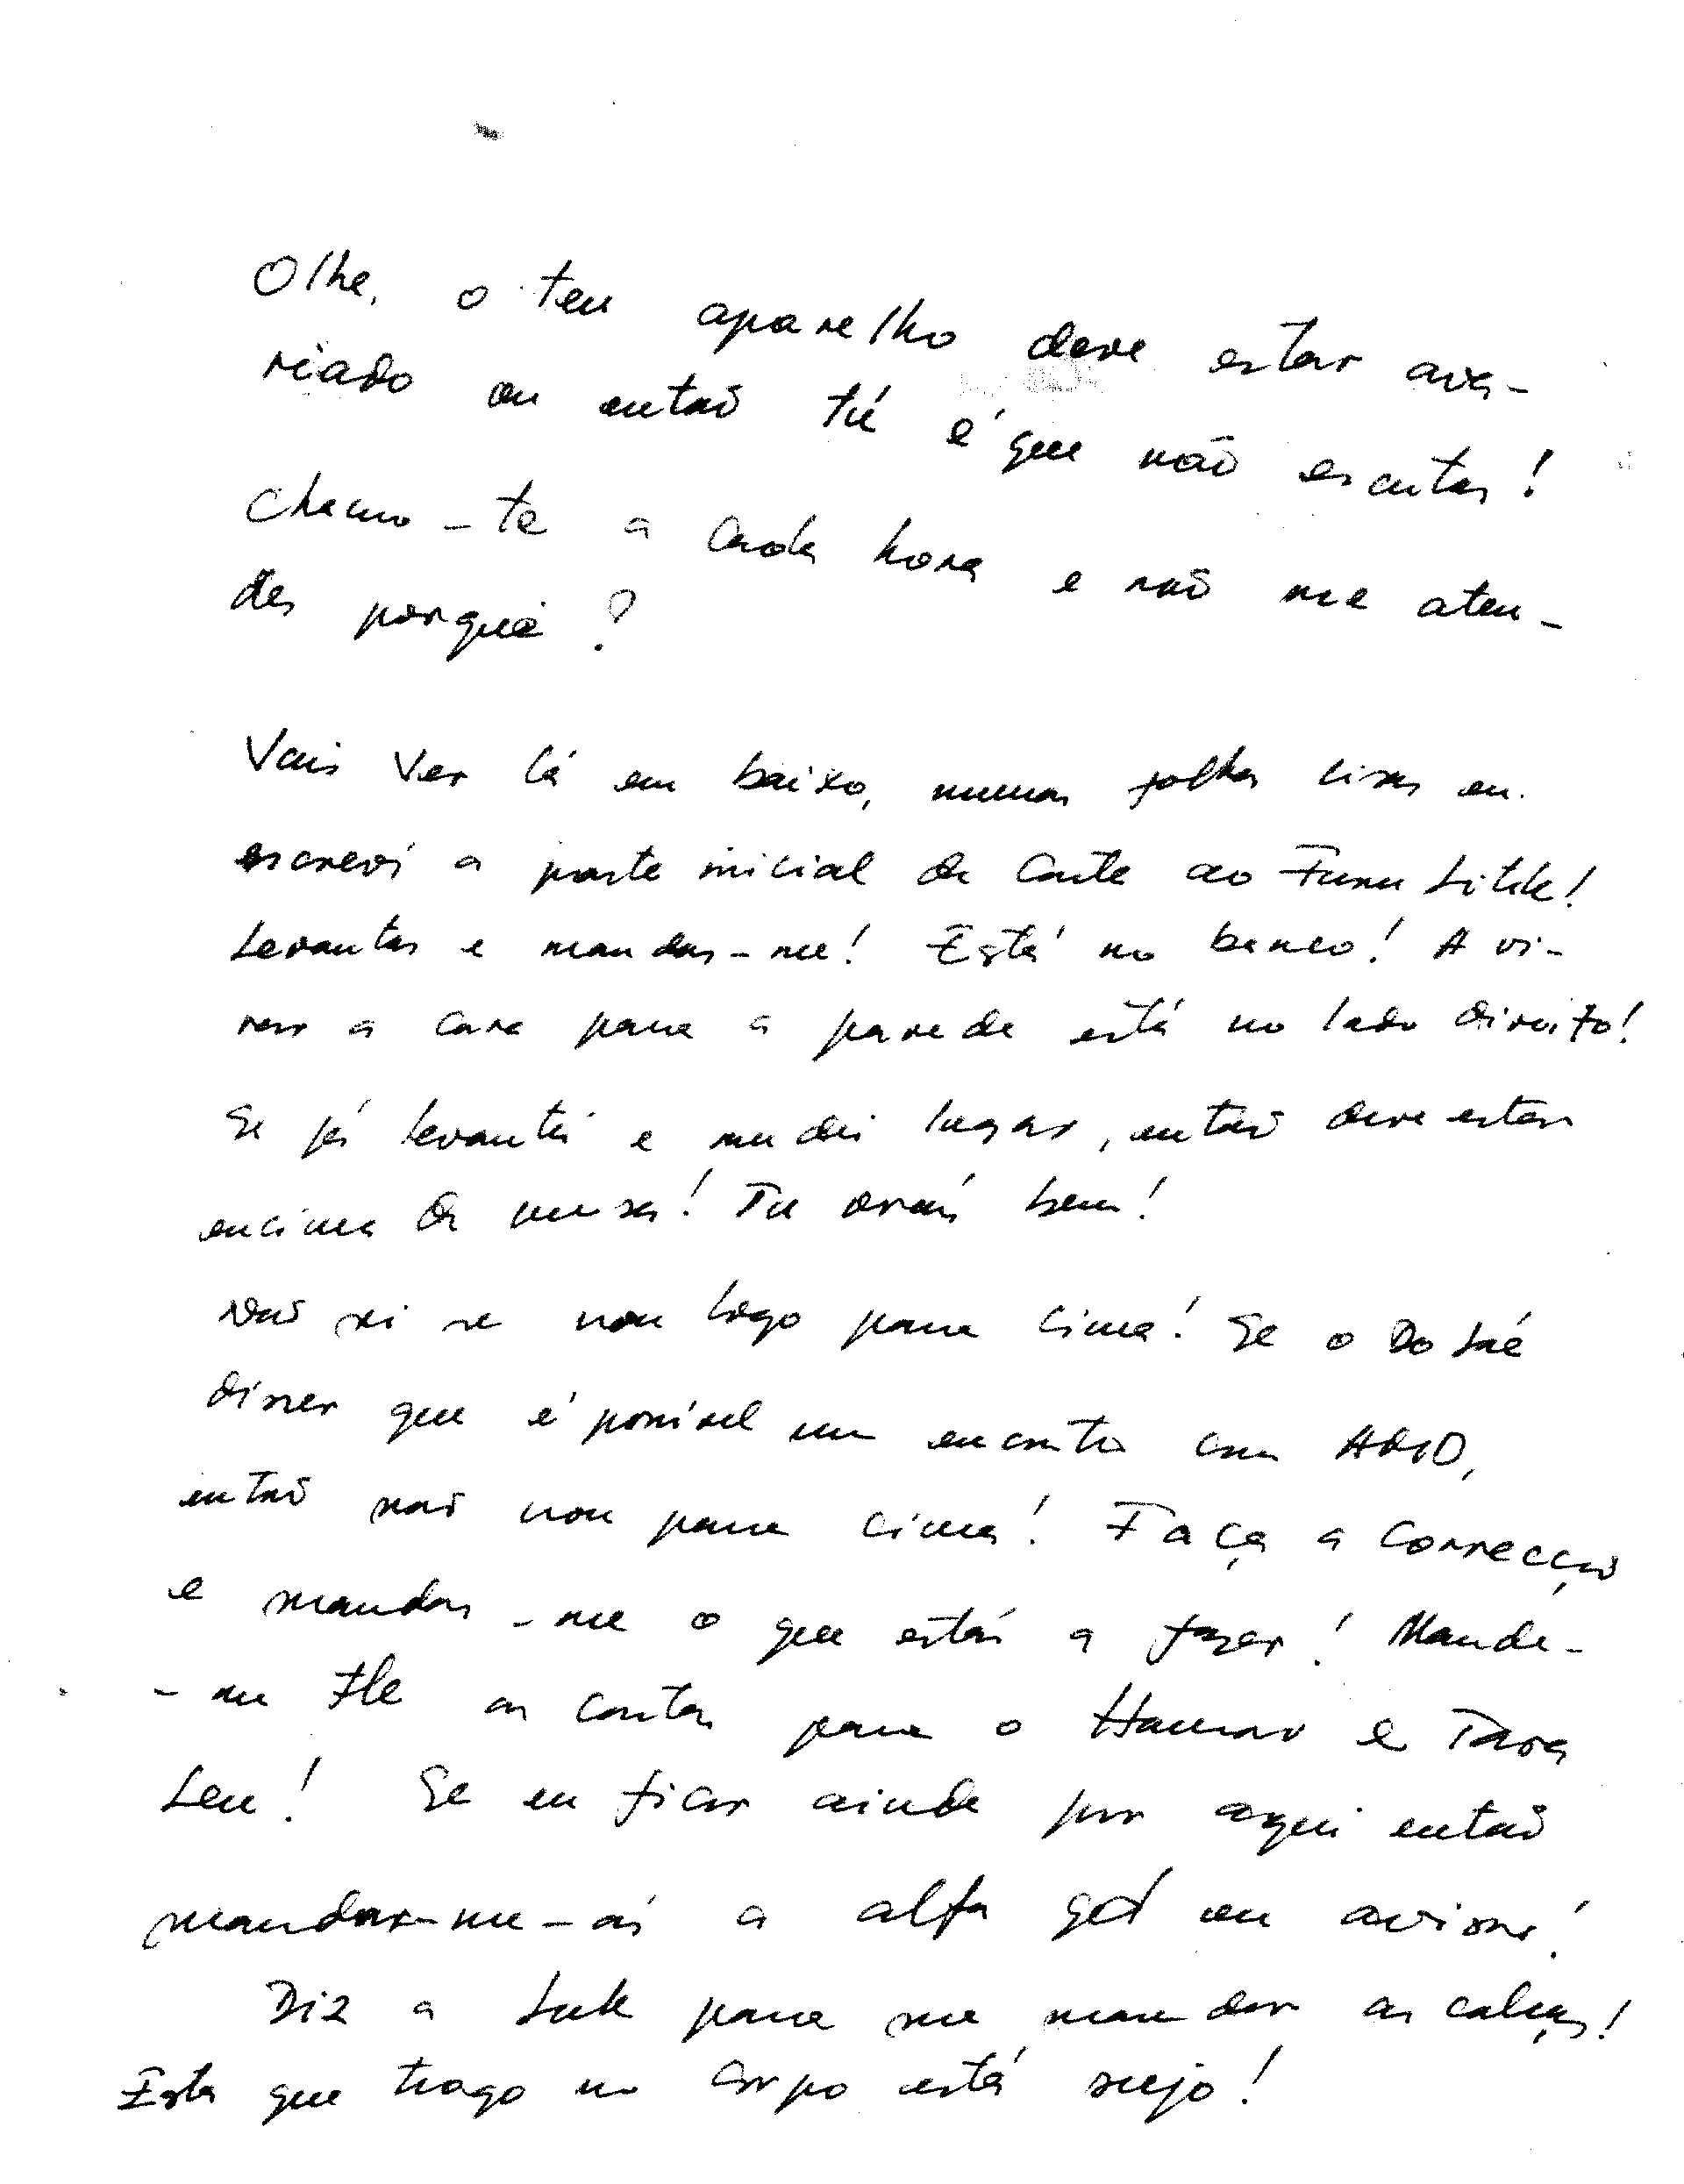 Olhe, o teu aparelho deve estar ava-
riado ou então tú é que não escutas!
Chamo-te a cada hora e não me aten-
des porquê?
Vais ver lá em baixo, numas folhas lisas eu
escrevi a parte inicial da carta ao Funu
Levantas e mandas-me! Está no banco! A vi-
rar a cara para a parede está no lado direito!
Se já levantei e mudei lugar, então deve estar
encima da mesa! Tu verás bem!
Não sei se vou logo para cima! Se o
disser que é possível um encontro com
então não vou para cima! Faça a correcção
e mandas-me o que estás a fazer! Mande-
-me as cartas para o e
Se eu ficar ainda por aqui então
mandar-me-ás a ou
Diz a para me mandar as calças!
Esta que trago no corpo está sujo!